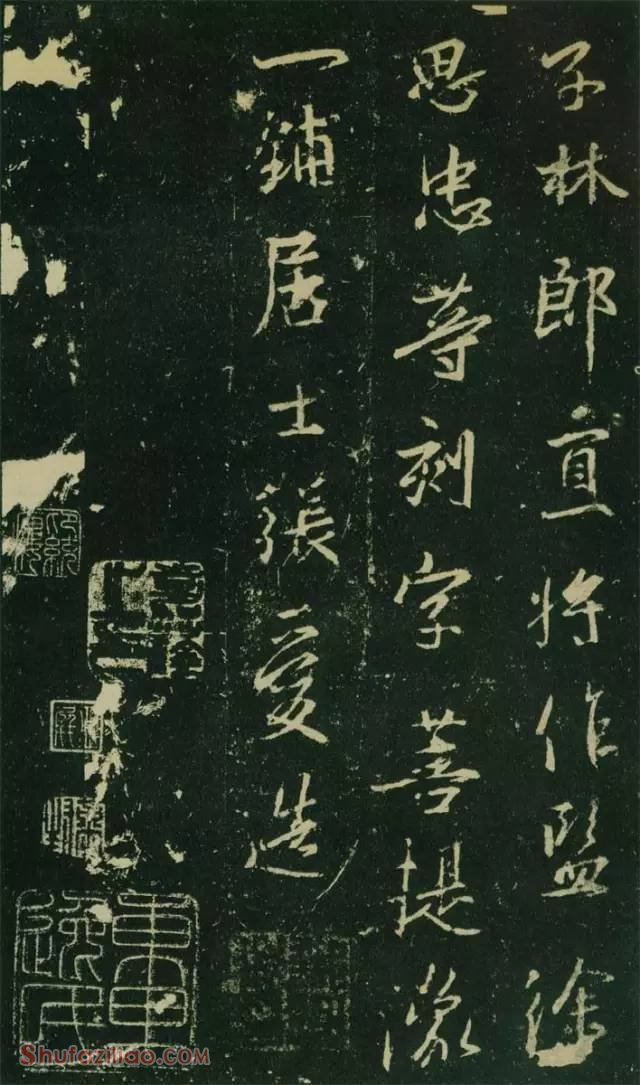 子林郎直将作監徐
思忠等刻字菩提像
一鋪居士張愛造
Shufaziliao.COM